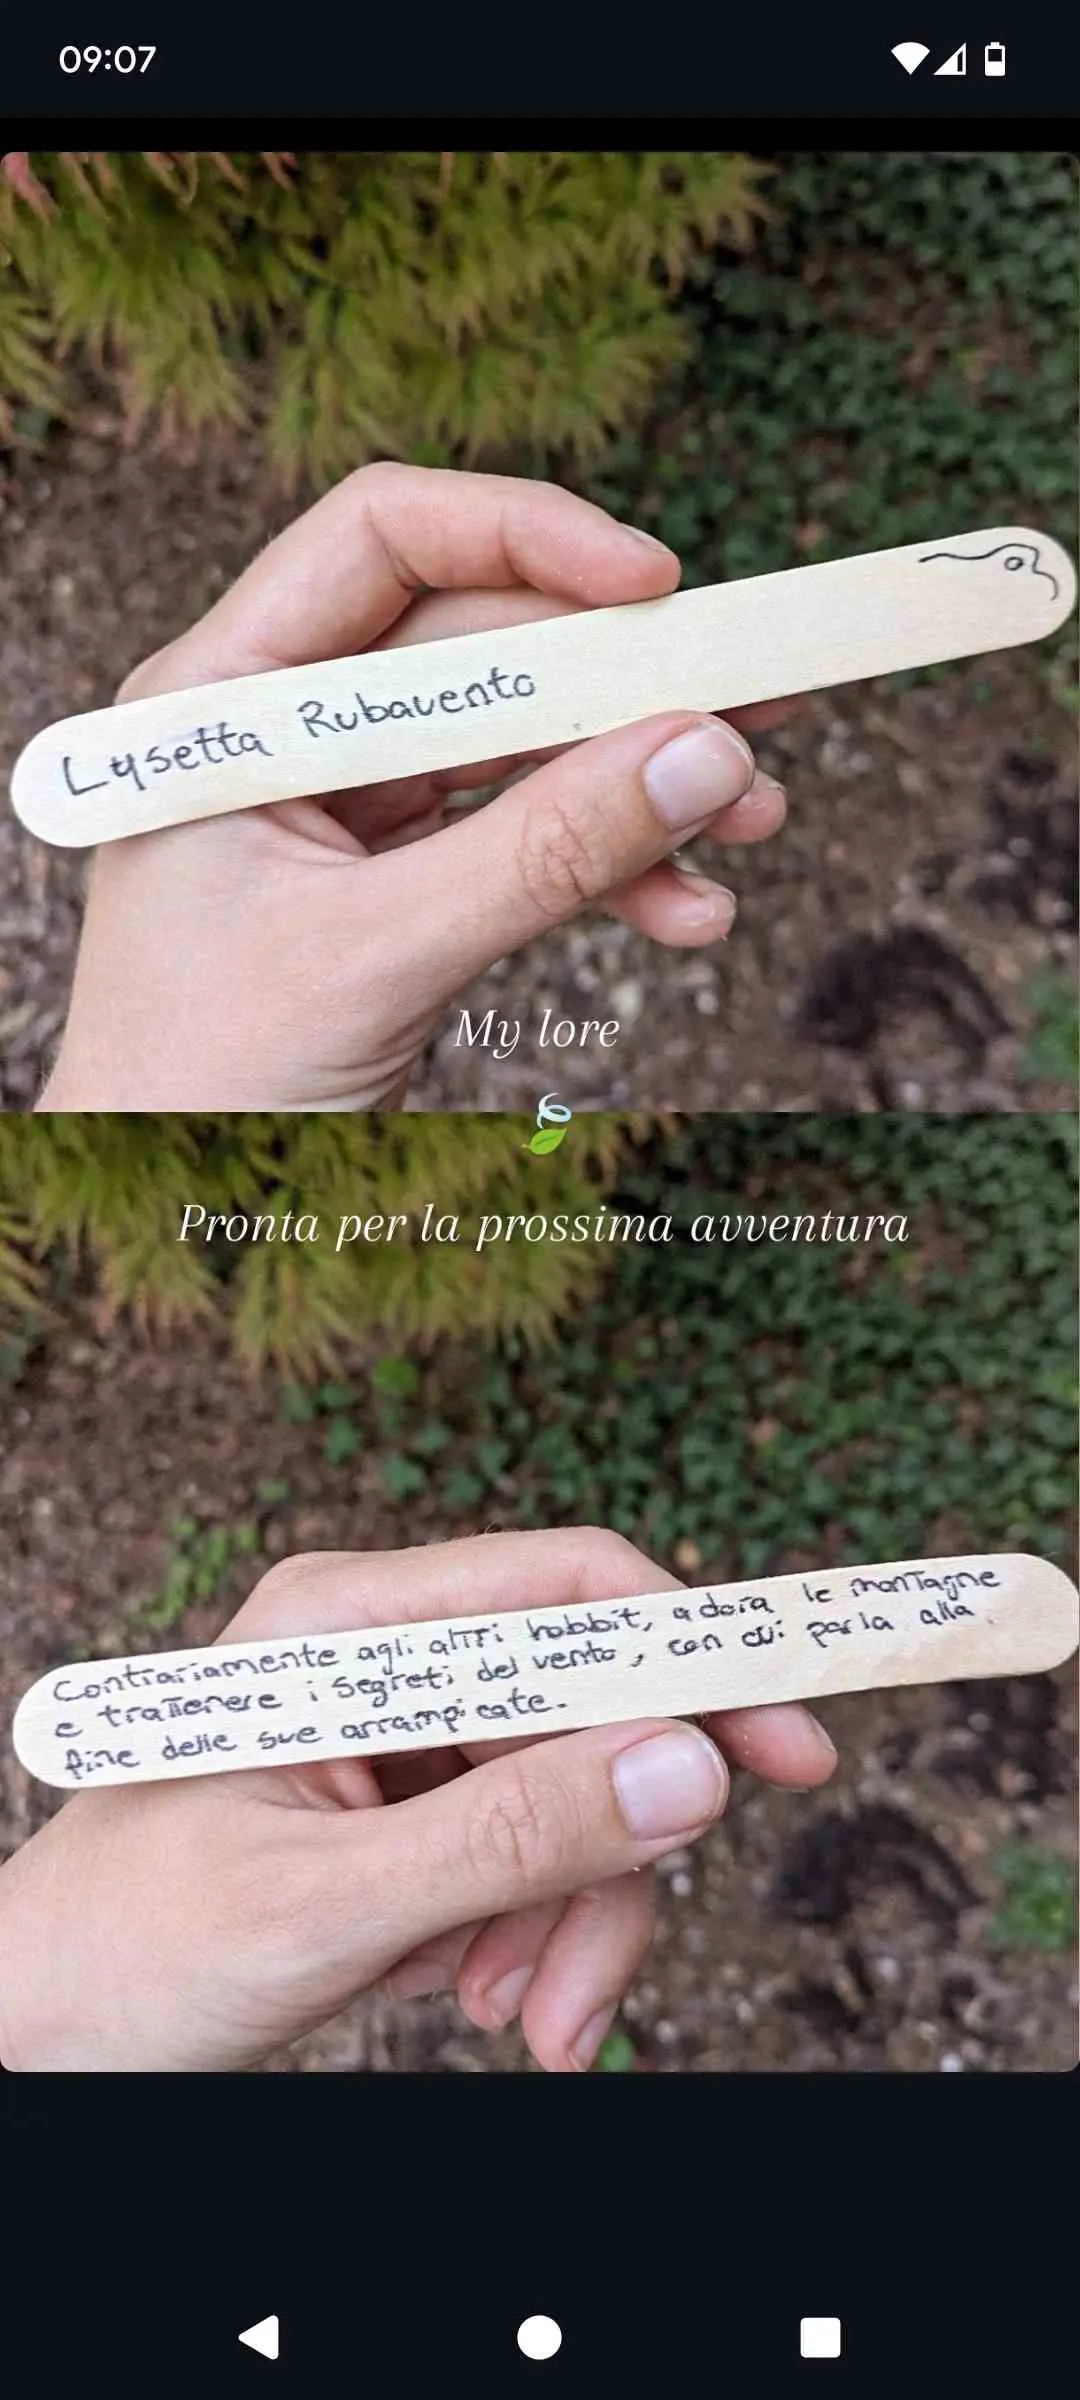 09:07
Lysetta Rubavento
My lore
Pronta per la prossima avventura
Contrariamente agli altri hobbit, adora le montagne
e trattenere i segreti del vento, con cui parla alla
fine delle sue arrampicate.